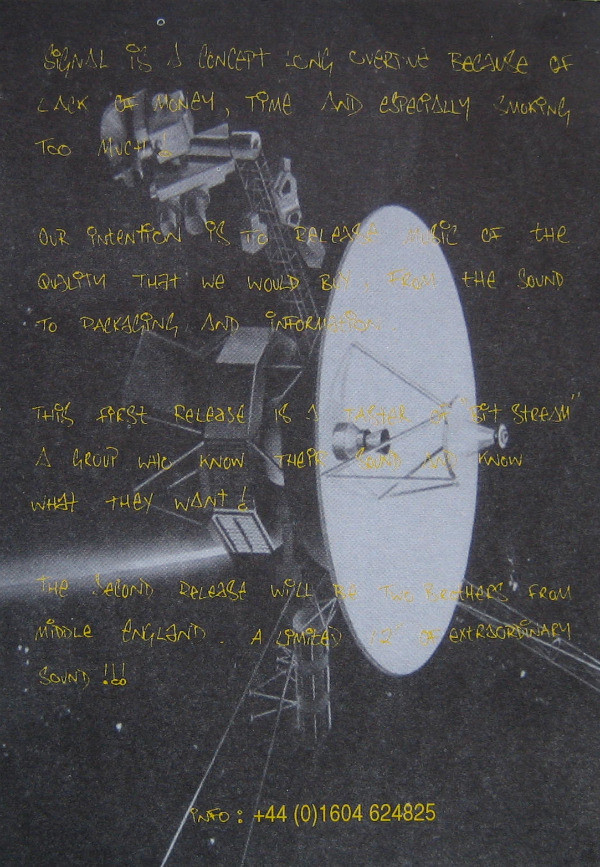 SIGNAL IS A CONCEPT LONG OVERDUE BECAUSE OF
LACK OF MONEY, TIME AND ESPECIALLY SMOKING
TOO MUCH !
OUR INTENTION IS TO RELEASE MUSIC OF THE
QUALITY THAT WE WOULD BUY. FROM THE SOUND
TO PACKAGING AND INFORMATION.
THIS FIRST RELEASE IS A TASTER OF "BIT STREAM"
A GROUP WHO KNOW THEIR SOUND AND KNOW
WHAT THEY WANT !
THE SECOND RELEASE WILL BE TWO BROTHERS FROM
MIDDLE ENGLAND. A LIMITED 12" OF EXTRAORDINARY
SOUND !!!
INFO : +44 (0)1604 624825